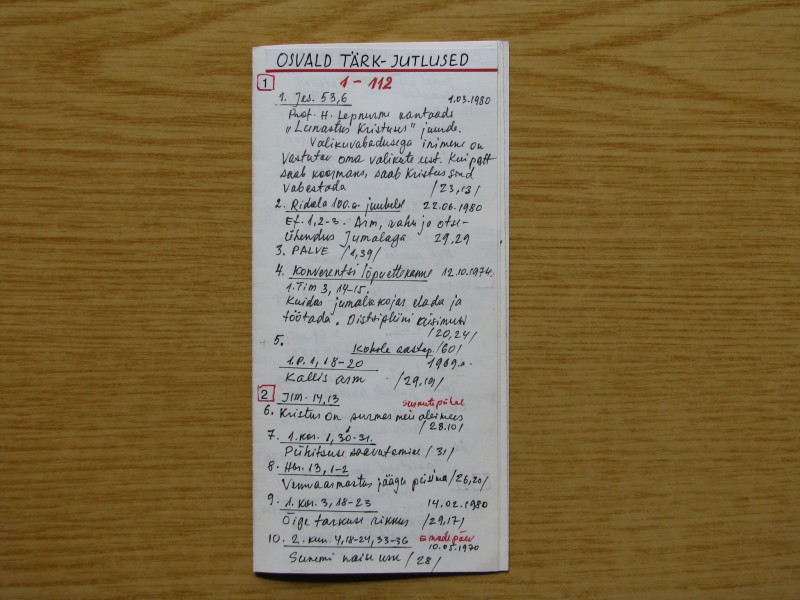 OSVALD TÄRK-JUTLUSED
1 1-112
1. Jes. 53,6 1.03.1980
Prof. H. Lepnurme kantaadi
"Lunastus Kristuses" juurde.
Valikuvabadusega inimene on
vastutav oma valikute eest. Kui patt
saab koormaks, saab Kristus sind
vabastada /23,13/
2. Ridala 100.a. juubelil 22.06.1980
Ef. 1,2-3. Arm, rahu ja otse-
ühendus Jumalaga 29.29
3. PALVE /1,39/
4. Konverentsi lõpuettekanne 12.10.1974.
1.Tim 3, 14-15.
Kuidas jumalakojas elada ja
töötada. Distsipliini küsimusi
/20,24/
5.
Kohila aastap. /60/
1.P. 1, 18-20 1969.a.
Kallis arm /29,19/
2 Ilm. 14,13 surnutepühal
6. Kristus on surmas meie
/28.10/
7. 1.Kor. 1, 30-31.
Pühitsuse saavutamine /31/
8. Hbr. 13, 1-2
Vennaarmastus jäägu püsima /26,20/
9. 1. Kor. 3, 18-23 14.02.1980
Õige tarkuse rikkus /29,17/
10. 2. Kun. 4,18-24, 33-36 Emadepäev
10.05.1970
Sunemi naise usk /28/